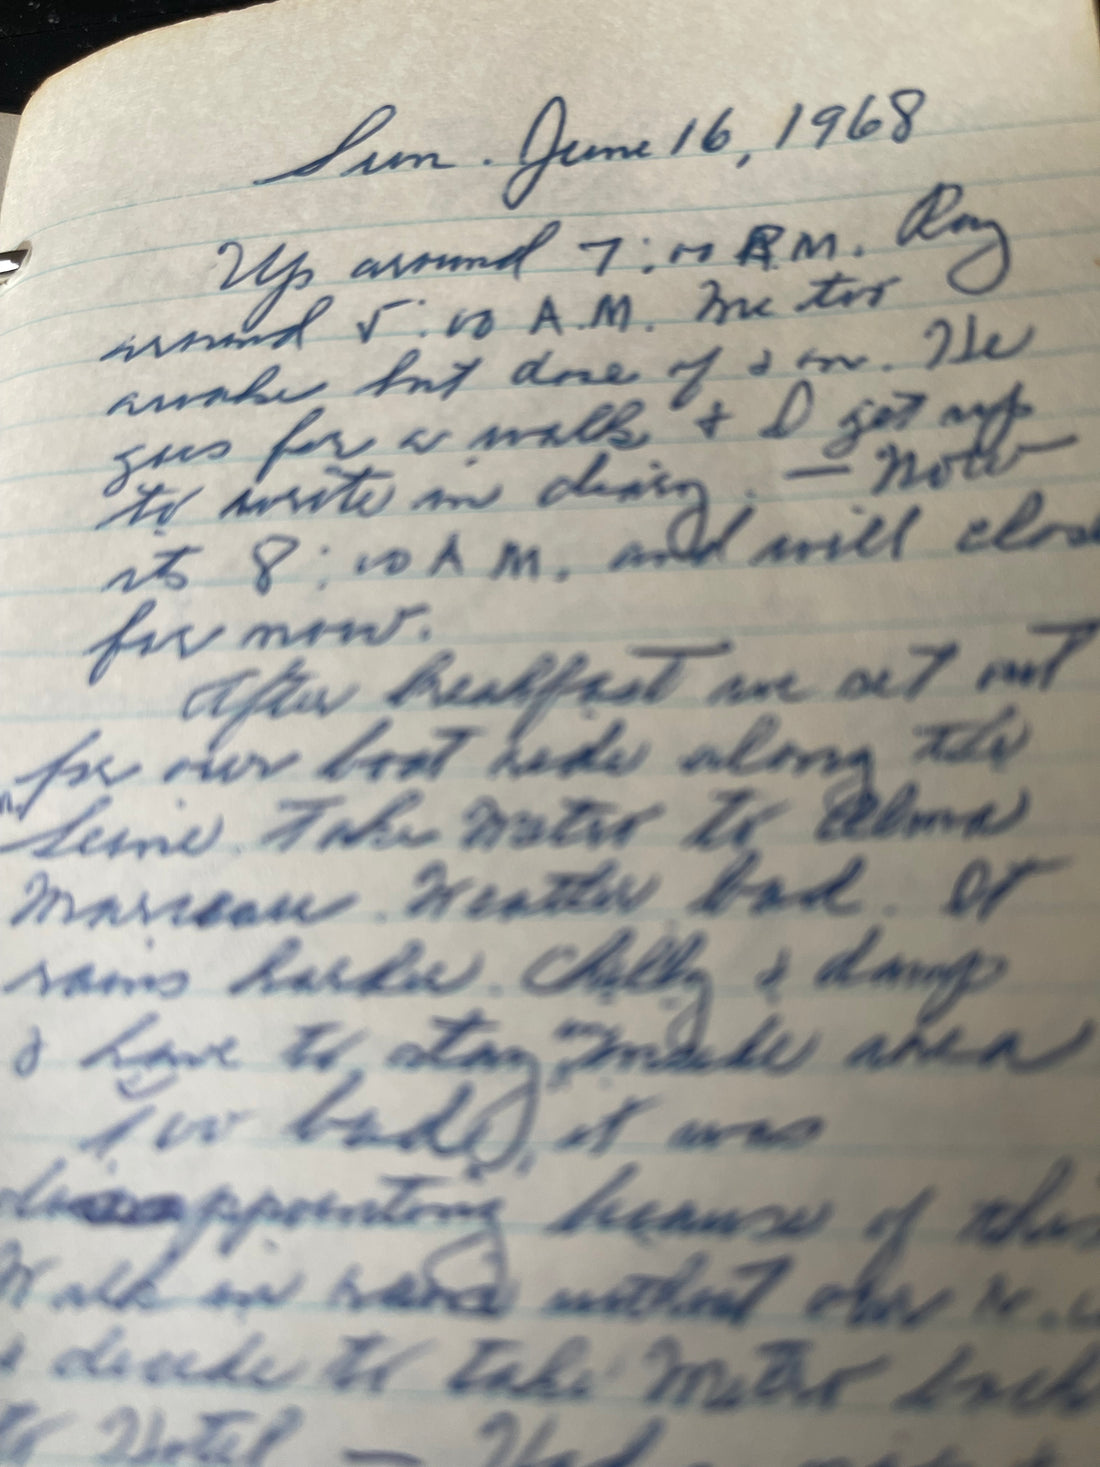 Sun. June 16, 1968
Up around 7:00 A.M. Ray
around 5:00 A.M. Me too
awake but doze off & on. He
goes for a walk & I get up
to write in diary. — Now
its 8:10 A.M. and will close
for now.
After breakfast we set out
for our boat ride along the
Seine. Take Metro to Alma
Marceau. Weather bad. It
rains harder. Chilly & damp
& have to stay inside area
Too bad, it was
disappointing because of this
Walk in rain without our
& decide to take Metro back
to Hotel — Had